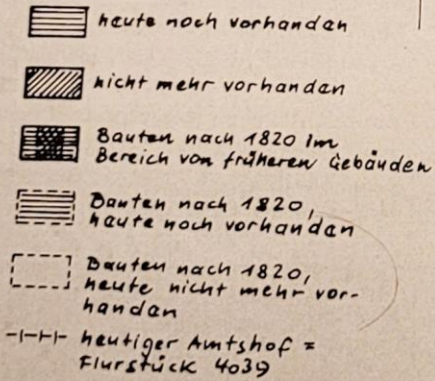 heute noch vorhanden
nicht mehr vorhanden
Bauten nach 1820 im
Bereich von früheren Gebäuden
Bauten nach 1820,
heute noch vorhanden
Bauten nach 1820,
heute nicht mehr vor-
handen
heutiger Amtshof =
Flurstück 4039